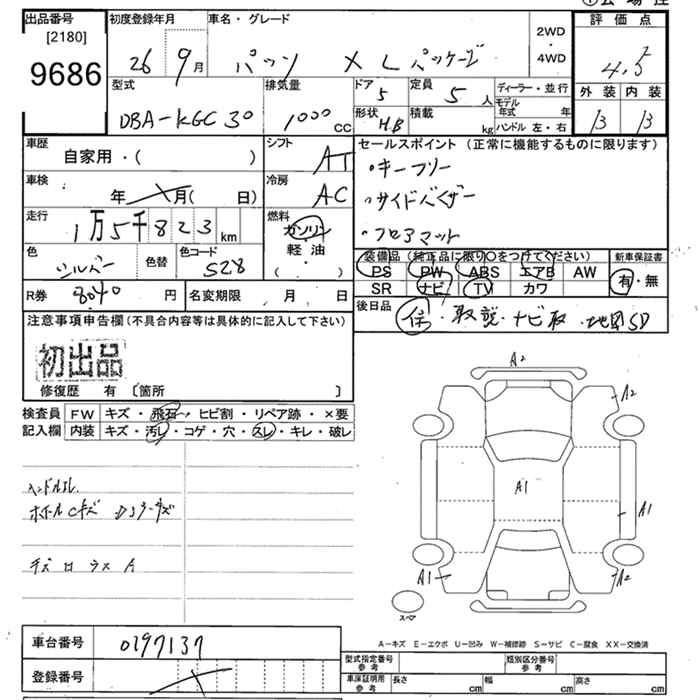 出品番号
[2180]
9686
初度登録年月
26 9月
車名・グレード
パッソ X Lパッケージ
2WD
4WD
評価点
4.5
外装 内装
B B
型式
DBA-KGC30
排気量
1000 cc
ドア
5
定員
5 人
形状
H.B
積載
kg
ディーラー・並行
モデル年式 年
ハンドル 左・右
車歴
自家用・( )
シフト
AT
車検
年 月( 日)
冷房
AC
走行
1万5千823 km
燃料
ガソリン
軽油
( ・ )
色
シルバー
色替
色コード
S28
R券
8040 円
名変期限 月 日
セールスポイント (正常に機能するものに限ります)
・キーフリー
・サイドバイザー
・フロアマット
装備品 (純正品に限り○をつけてください)
PS PW ABS エアB AW
SR ナビ TV カワ
新車保証書
有・無
後日品
保・取説・ナビ取・地図SD
注意事項申告欄(不具合内容等は具体的に記入して下さい)
初出品
修復歴 有 〔箇所 〕
検査員 FW キズ・飛石・ヒビ割・リペア跡・×要
記入欄 内装 キズ・汚レ・コゲ・穴・スレ・キレ・破レ
ハンドルスレ
A2
A2
A1
A1
A1
A2
スペア
A-キズ E-エクボ U-凹み W-補修跡 S-サビ C-腐食 XX-交換済
車台番号
0197137
登録番号
型式指定番号 参考
類別区分番号 参考
車庫証明用 参考
長さ cm 幅 cm 高さ cm